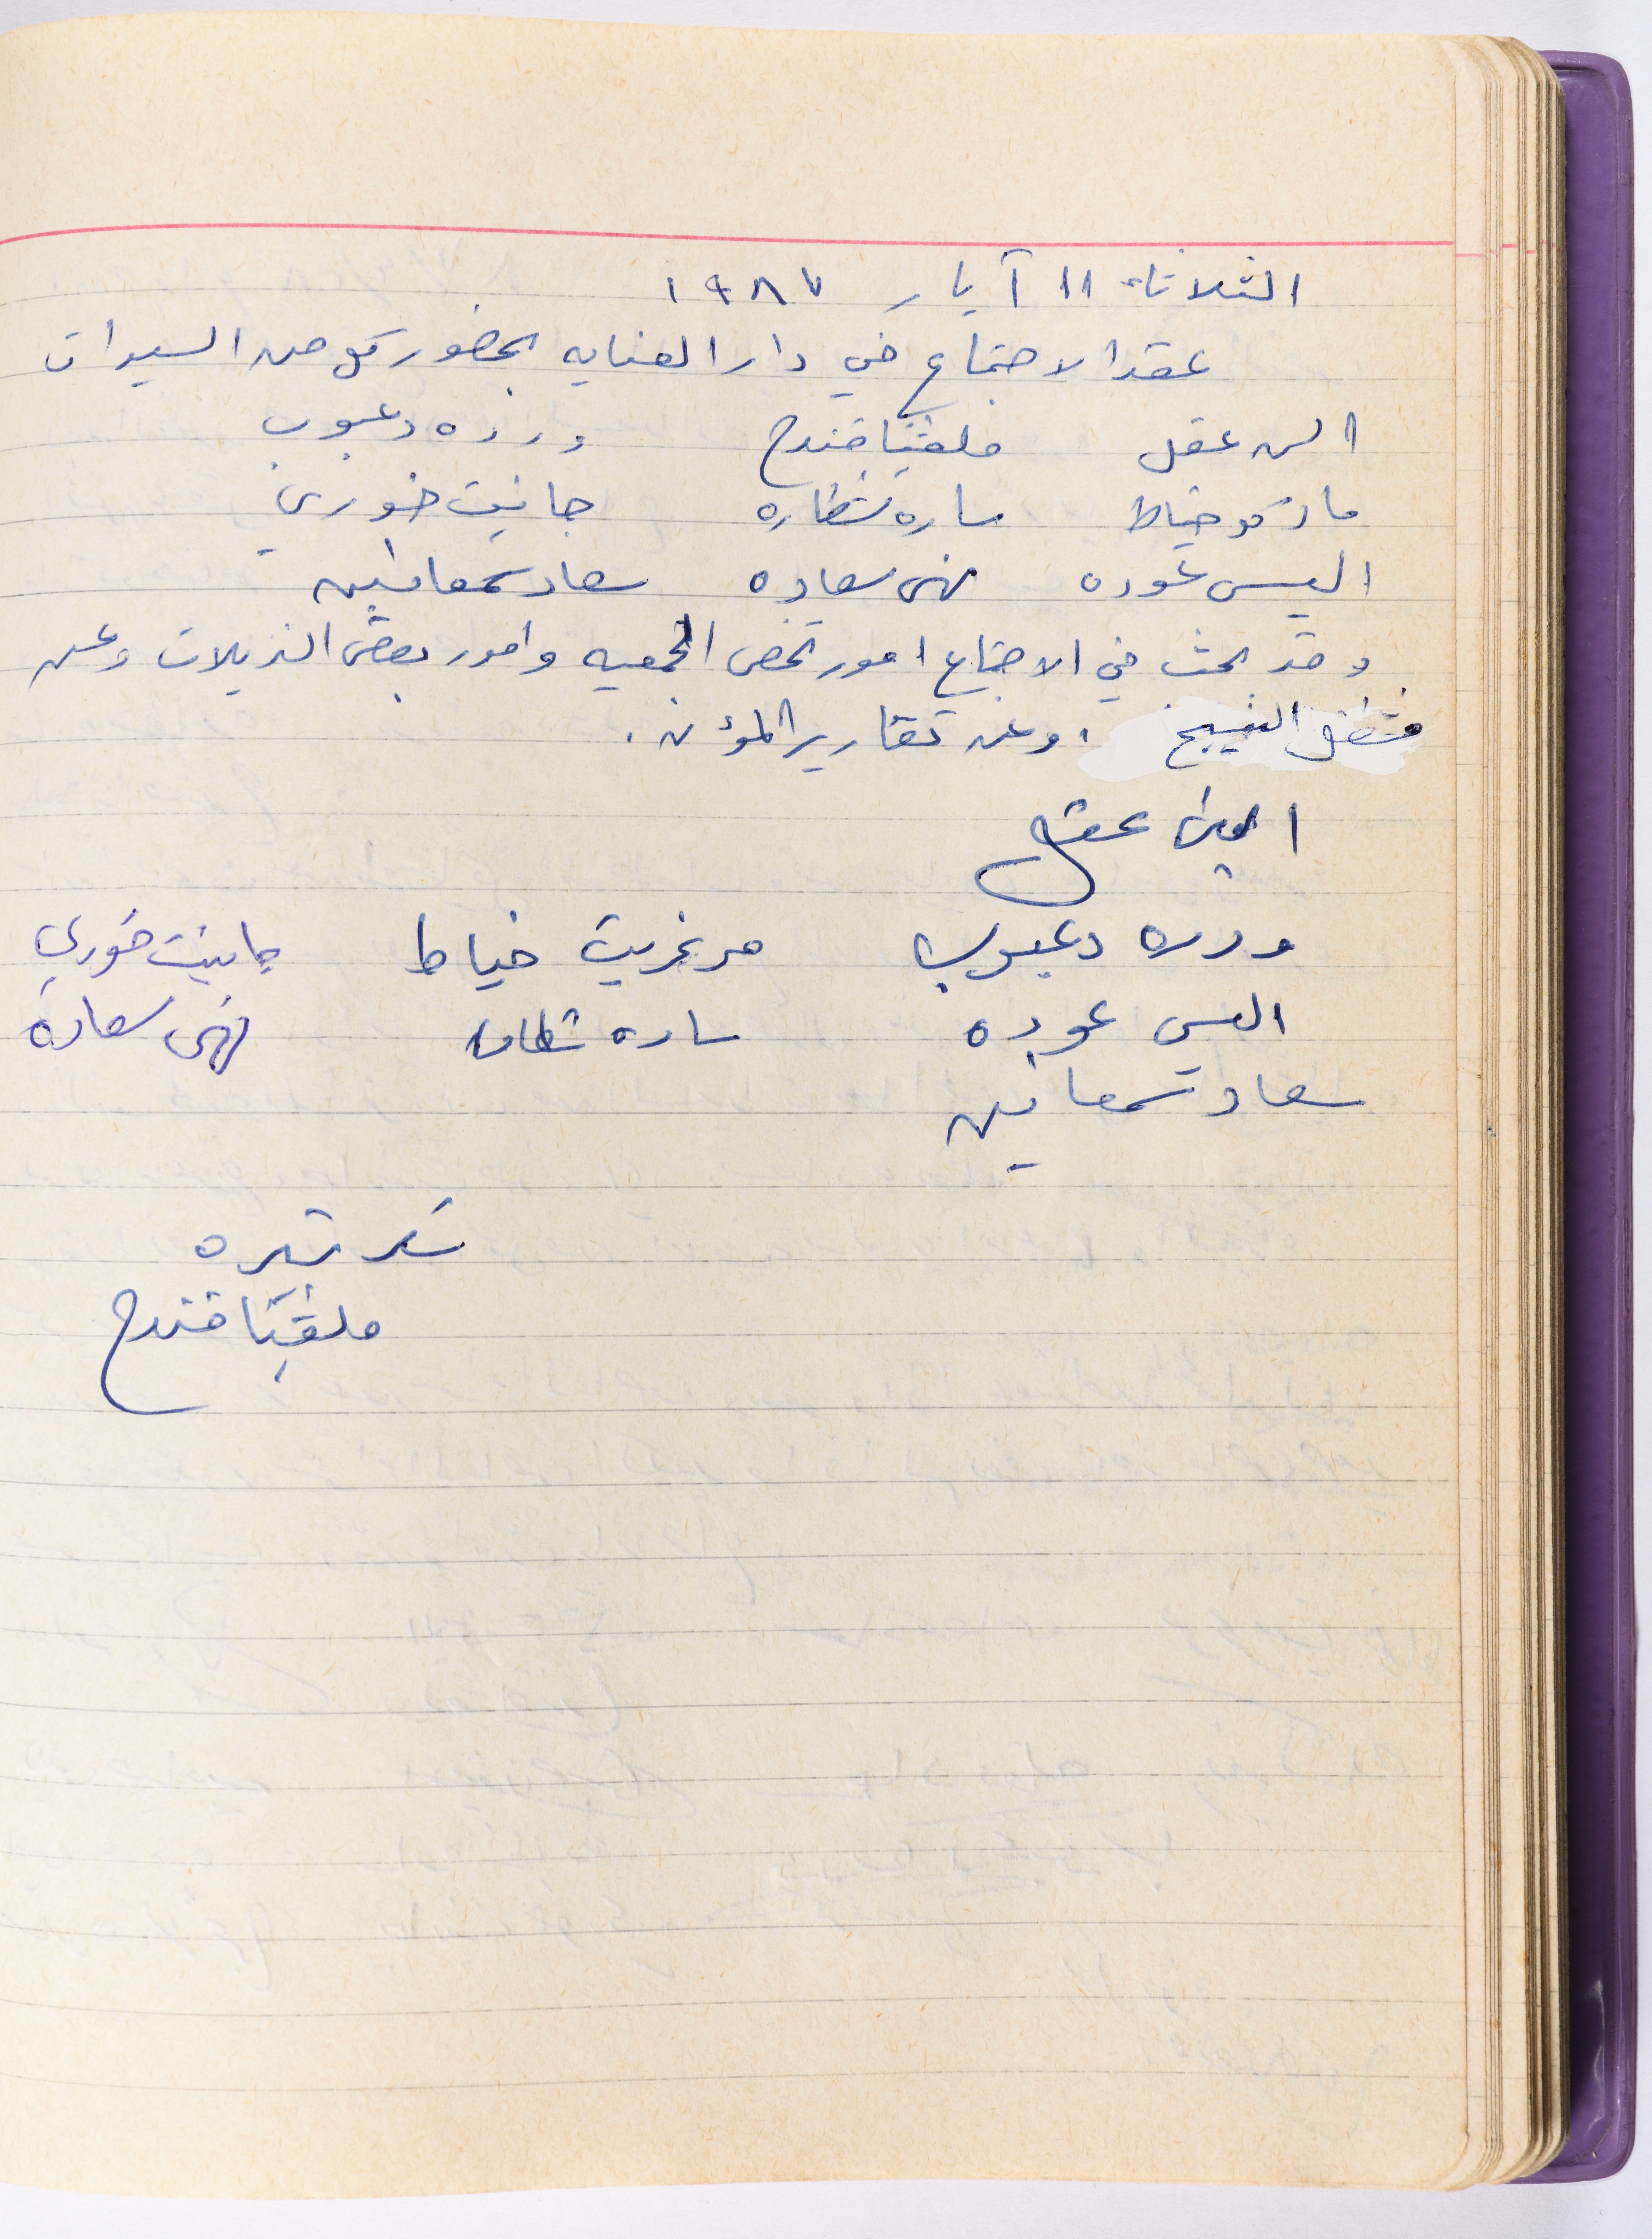 الثلاثاء ١١ آيار ١٩٨٧
عقد الاجتماع في دار العنايه بحضور كل من السيدات
الن عقل ملفينا قندح ورده دعبوب
ماركو خياط ساره شطاره جانيت خوري
اليس عوده نهى سعاده سعاد سمعانين
وقد بحث في الاجتماع امور تخص الجمعيه وامور بعض النزيلات وعن
مشغل النسيج . وعن تقارير المؤن .
الين عقل
ورده دعبوب مرغريت خياط جانيت خوري
اليس عوده ساره شطاره نهى سعاده
سعاد سمعانين
سكرتيره
ملفينا قندح